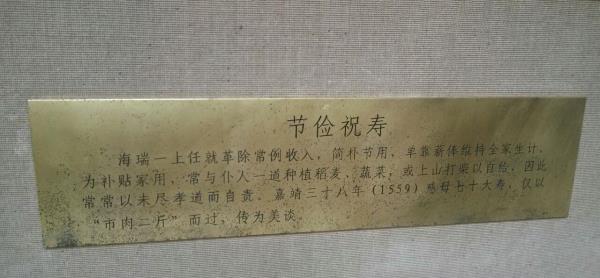 节俭祝寿
海瑞一上任就革除常例收入，简朴节用，单靠薪俸维持全家生计。
为补贴家用，常与仆人一道种植稻麦、蔬菜，或上山打柴以自给，因此
常常以未尽孝道而自责。嘉靖三十八年(1559)慈母七十大寿，仅以
“市肉二斤”而过，传为美谈。